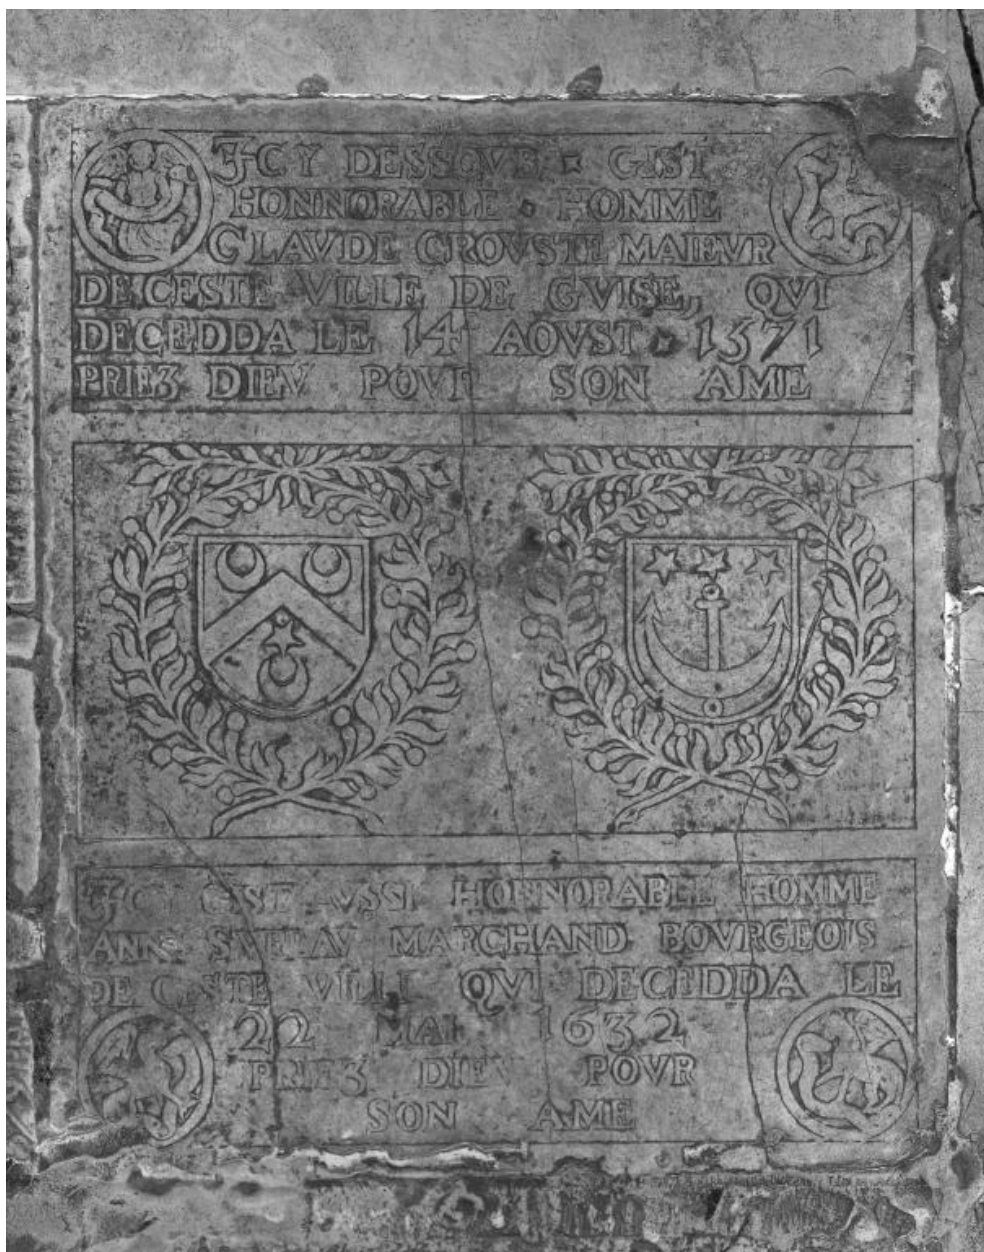 ICY DESSOVB GIST
HONNORABLE HOMME
CLAVDE CROVSTE MAIEVR
DE CESTE VILLE DE GVISE, QVI
DECEDDA LE 14 AOVST 1571
PRIEZ DIEV POVR SON AME
ICY GIST AVSSI HONNORABLE HOMME
MARCHAND BOVRGEOIS
DE CESTE VILLE QVI DECEDDA LE
22 MAI 1632
PRIEZ DIEV POVR
SON AME